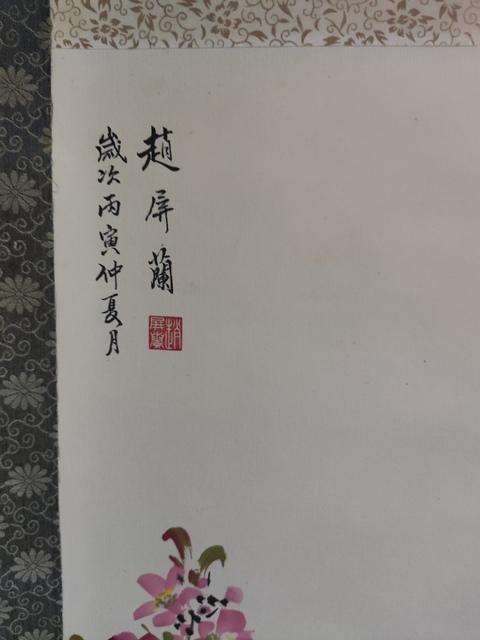 趙屏蘭
歲次丙寅仲夏月
趙屏蘭